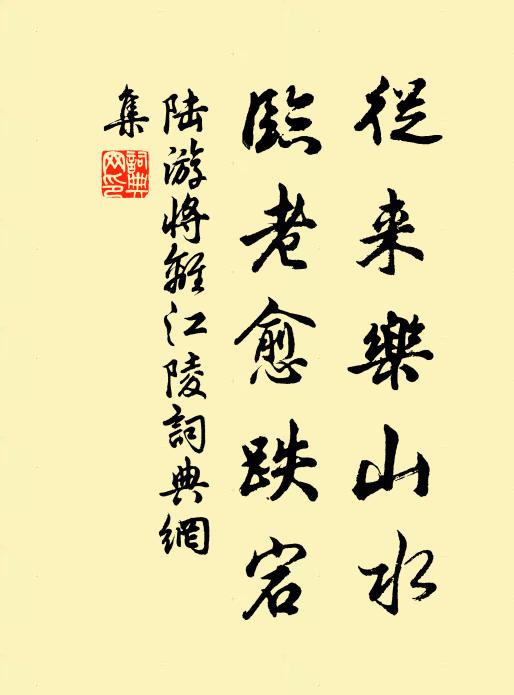 從来樂山水
臨老愈跌宕
陆游将離江陵詞典網
集
詞典网印